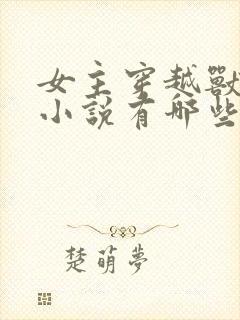 女主穿越獸
小說有哪些
楚萌夢